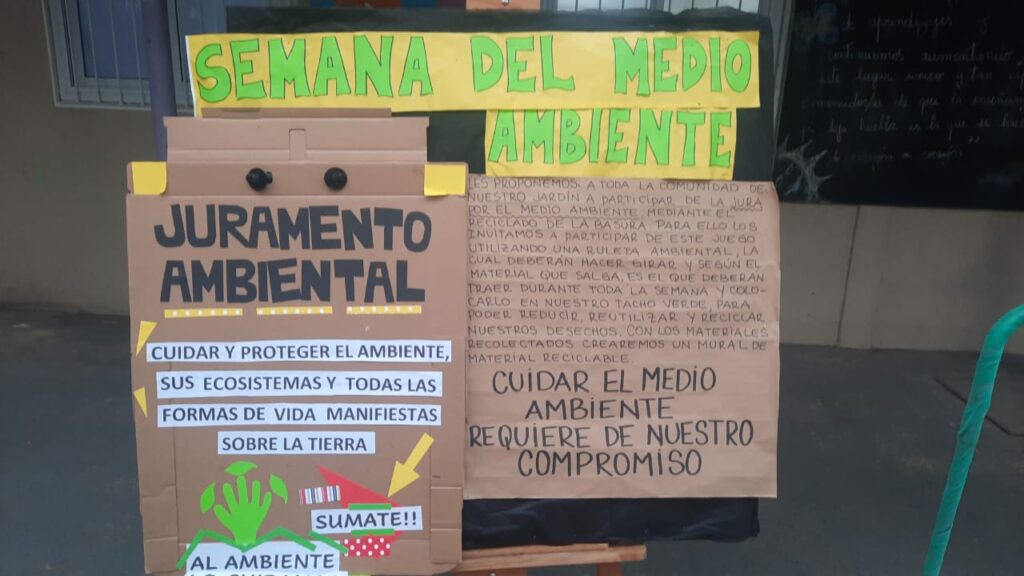 SEMANA DEL MEDIO
AMBIENTE
JURAMENTO
AMBIENTAL
CUIDAR Y PROTEGER EL AMBIENTE,
SUS ECOSISTEMAS Y TODAS LAS
FORMAS DE VIDA MANIFIESTAS
SOBRE LA TIERRA
SUMATE!!
AL AMBIENTE
LES PROPONEMOS A TODA LA COMUNIDAD DE
NUESTRO JARDÍN A PARTICIPAR DE LA JURA
POR EL MEDIO AMBIENTE, MEDIANTE EL
RECICLADO DE LA BASURA. PARA ELLO LOS
INVITAMOS A PARTICIPAR DE ESTE JUEGO
UTILIZANDO UNA RULETA AMBIENTAL, LA
CUAL DEBERÁN HACER GIRAR Y SEGÚN EL
MATERIAL QUE SALGA, ES EL QUE DEBERÁN
TRAER DURANTE TODA LA SEMANA Y COLO-
CARLO EN NUESTRO TACHO VERDE, PARA
PODER REDUCIR, REUTILIZAR Y RECICLAR
NUESTROS DESECHOS. CON LOS MATERIALES
RECOLECTADOS CREAREMOS UN MURAL DE
MATERIAL RECICLABLE.
CUIDAR EL MEDIO
AMBIENTE
REQUIERE DE NUESTRO
COMPROMISO
de aprendizajes y
continuemos
este lugar único y tan
de que la